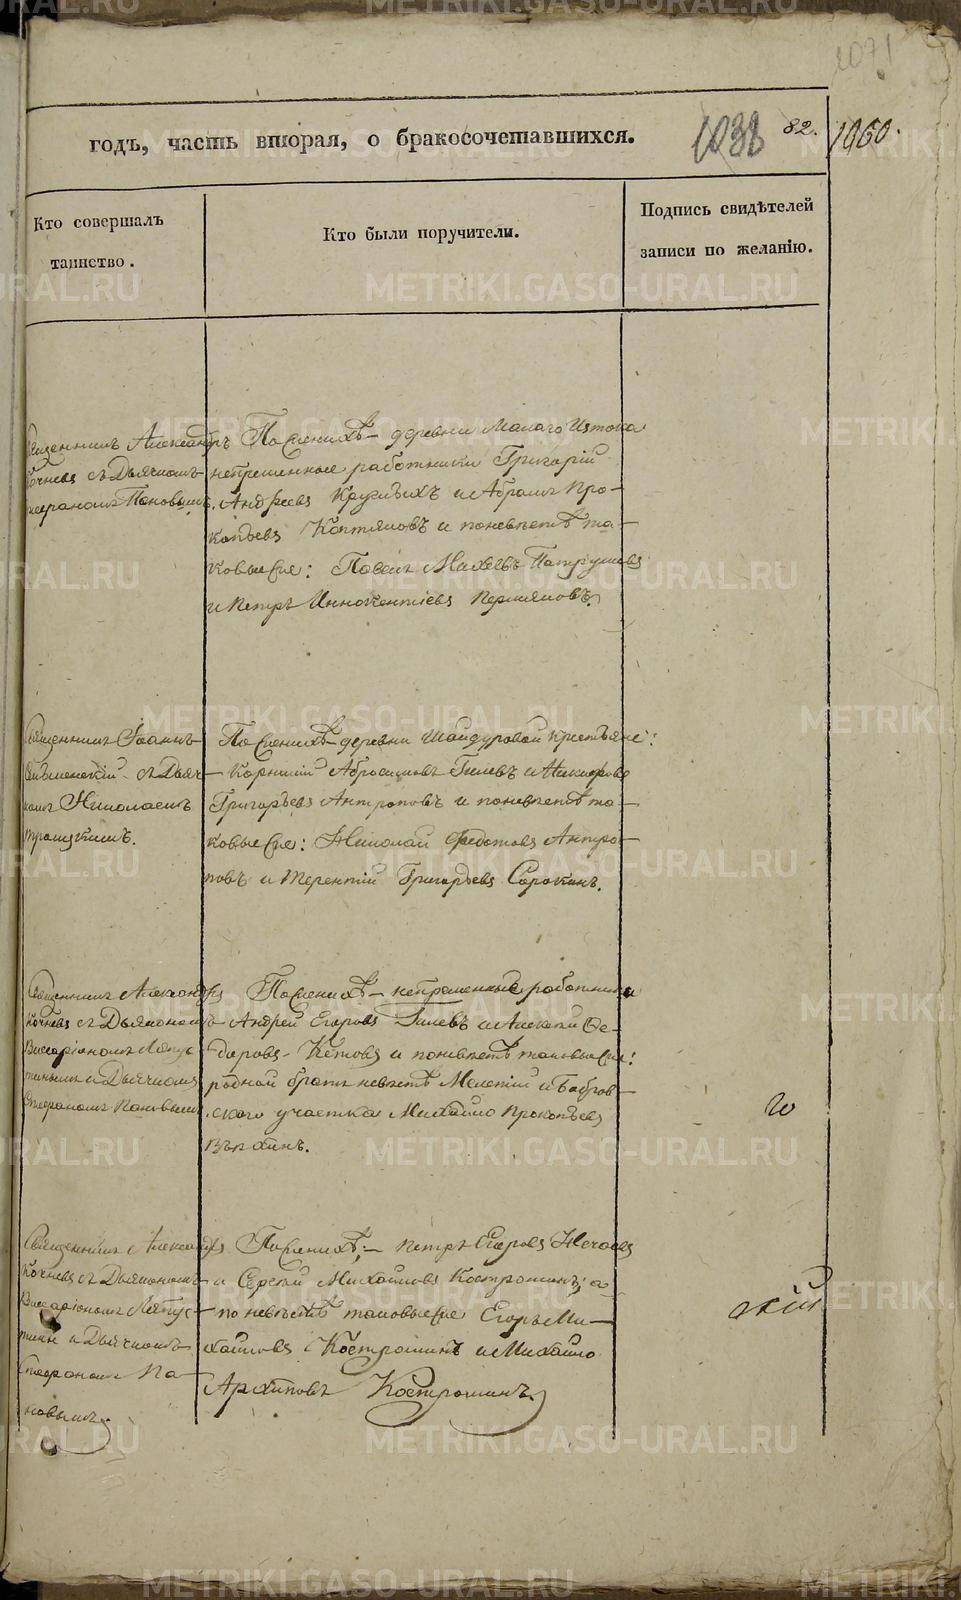 годъ, часть вторая, о бракосочетавшихся.
1038
82.
1060.
2071
Кто совершалъ
таинство.
Кто были поручители.
Подпись свидѣтелей
записи по желанію.
Священникъ Александръ
Кочневъ съ Дьячкомъ
Пановымъ.
По женихѣ – деревни Малаго Истока
непременные работники Григорій
Андреевъ Кругихъ и Абрамъ Про-
копьевъ Коптяковъ и по невѣстѣ та-
ковые же: Михеевъ Патрушевъ
и Петръ Иннокентіевъ Пермяковъ.
Священникъ Іоаннъ
съ Дьяч-
комъ Николаемъ
По женихѣ – деревни Шайдуровой крестьяне:
Корнилій Абросимовъ Гилевъ и Никифоръ
Григорьевъ Антроповъ и по невѣстѣ та-
ковые же: Николай Федотовъ Антро-
повъ и Терентій Григорьевъ Сорокинъ.
Священникъ Александръ
Кочневъ съ Дьякономъ
Виссаріономъ Ляпус-
тинымъ и Дьячкомъ
Стефаномъ Пановымъ
По женихѣ – непременные работники
Андрей Егоровъ Гилевъ и Алексѣй Ѳе-
доровъ Кетовъ и по невѣстѣ таковые же:
родной братъ невѣстѣ Мелетій и Бобров-
скаго участка Михайло Прокопьевъ
Священникъ Александръ
Кочневъ съ Дьякономъ
Виссаріономъ Ляпус-
тинъ и Дьячкомъ
Стефаномъ Па-
новымъ.
По женихѣ; – Петръ Егоровъ
и Сергѣй Михайловъ Костроминъ; а
по невѣстѣ таковые же Егоръ Ми-
хайловъ Костроминъ и Михайло
Архиповъ Костроминъ.
го
скій
METRIKI.GASO-URAL.RU